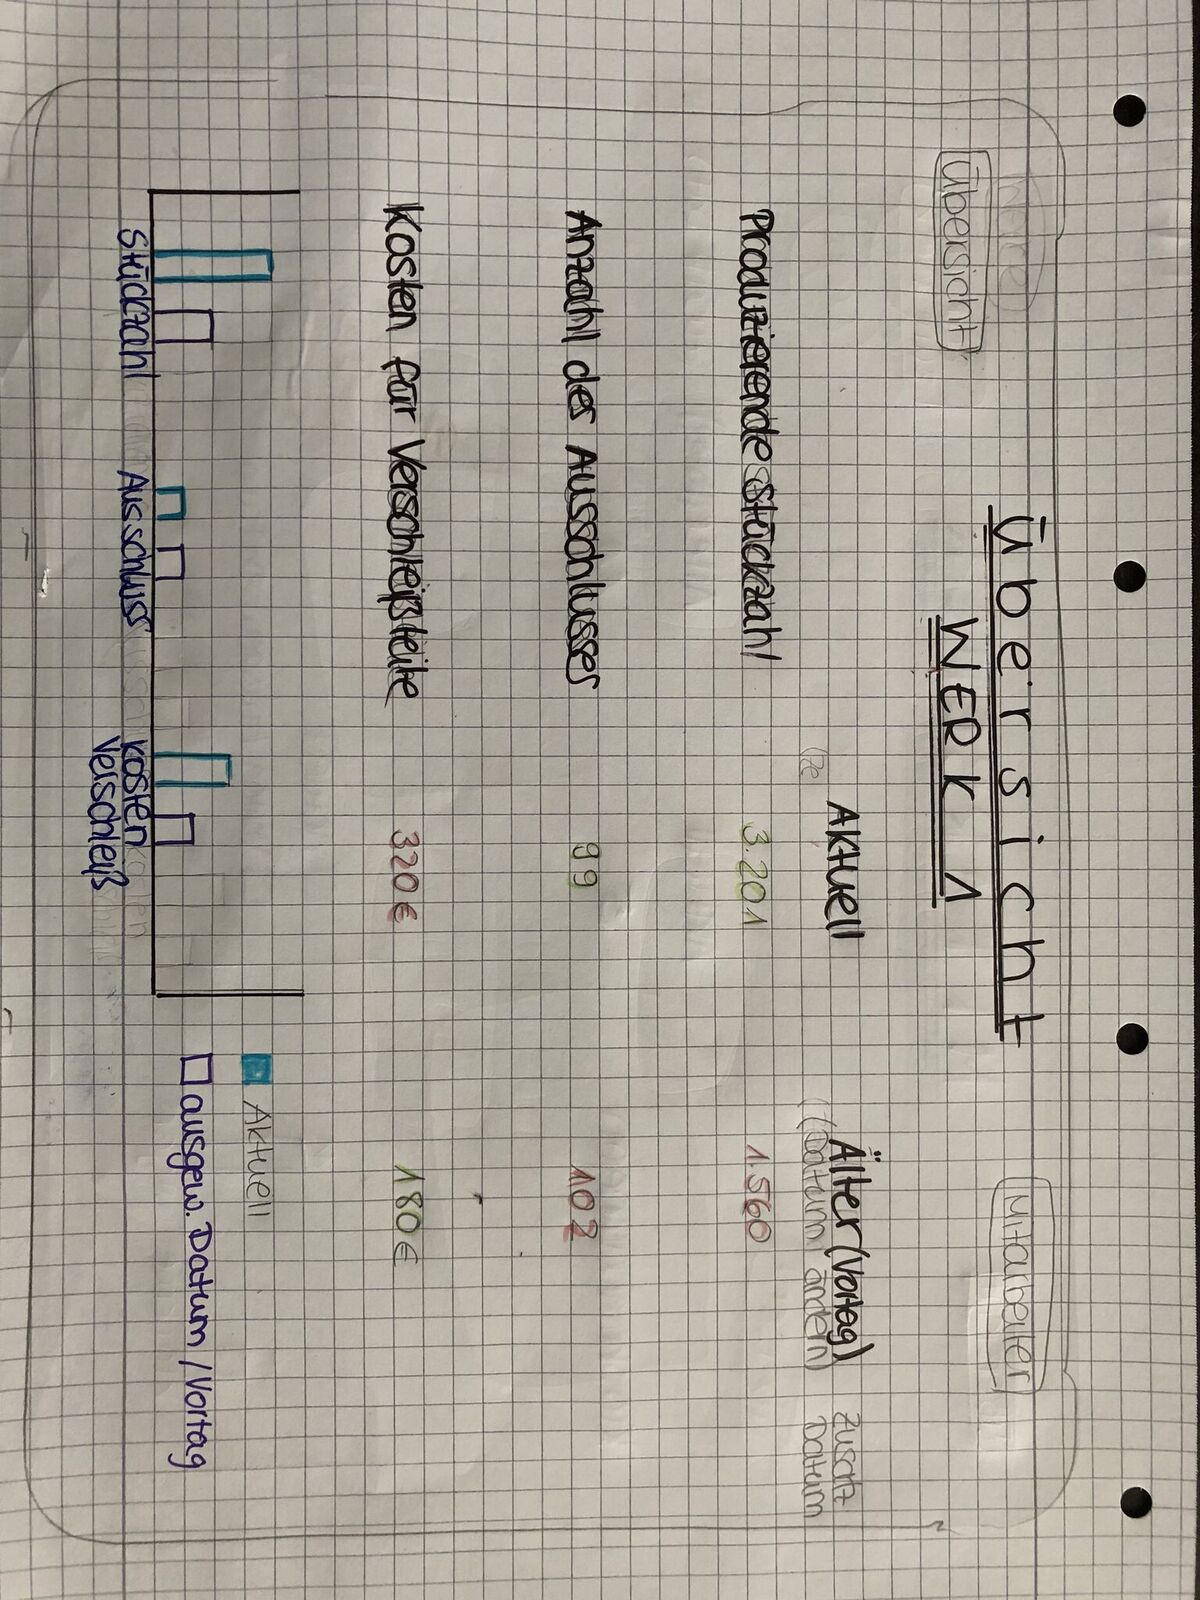 Übersicht
WERK 1
Übersicht
Mitarbeiter
Aktuell
Älter (Vortag)
(Datum ändern)
Zusatz
Datum
Produzierende Stückzahl 3.201 1.560
Anzahl des Ausschlusses 99 102
Kosten für Verschleißteile 320€ 180€
Stückzahl
Ausschluss
Kosten
Verschleiß
Aktuell
ausgew. Datum / Vortag